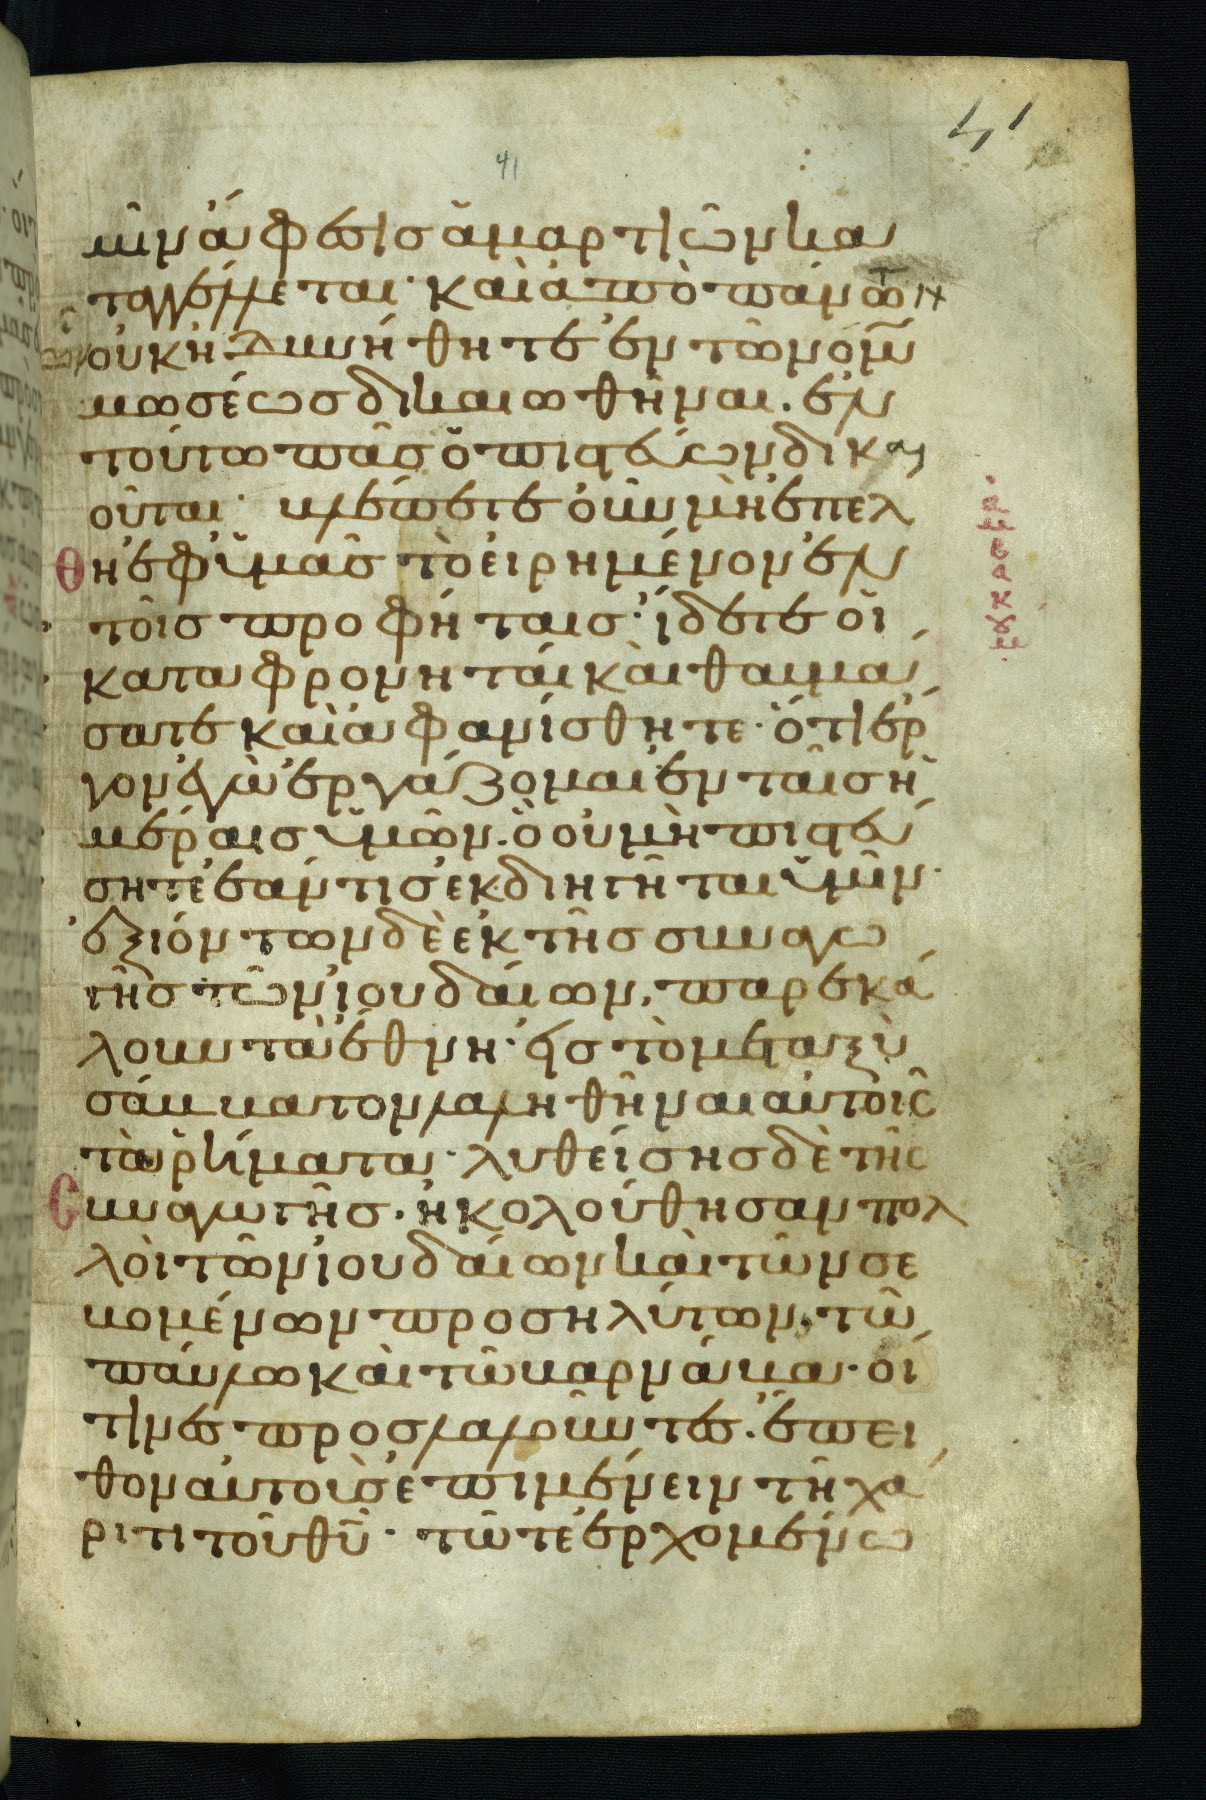 41
41
μῖν ἄφεσις ἁμαρτιῶν κα
ταγγέλλεται· καὶ ἀπὸ πάντων
ὧν οὐκ ἠδυνήθητε ἐν τῶ νόμω
μωσέως δικαιωθῆναι. ἐν
τούτω πᾶς ὁ πιστεύων δικαι
οῦται· βλέπετε οὖν μὴ ἐπέλ
θη ἐφ ὑμᾶς τὸ εἰρημένον ἐν
τοῖς προφήταις· ἴδετε οἱ
καταφρονηταί καὶ θαυμά
σατε καὶ ἀφανίσθητε· ὅτι ἔρ
γον ἐγὼ ἐργάζομαι ἐν ταῖς ἡ
μέραις ὑμῶν. ὃ οὐ μὴ πιστεύ
σητε ἐάν τις ἐκδιηγῆται ὑμῖν·
ἐξιόντων δὲ ἐκ τῆς συναγω
γῆς τῶν ἰουδαίων, παρεκά
λουν τὰ ἔθνη· εἰς τὸ μεταξὺ
σάββατον λαληθῆναι αὐτοῖς
τὰ ῥήματα· λυθείσης δὲ τῆς
συναγωγῆς. ἠκολούθησαν πολ
λοὶ τῶν ἰουδαίων καὶ τῶν σε
βομένων προσηλύτων. τῶ
παύλω καὶ τῶ βαρνάβα· οἵ
τινες προσλαλοῦντες. ἔπει
θον αὐτοὺς ἐπιμένειν τῆ χά
ριτι τοῦ θῦ· τῶ τε ἐρχομένω